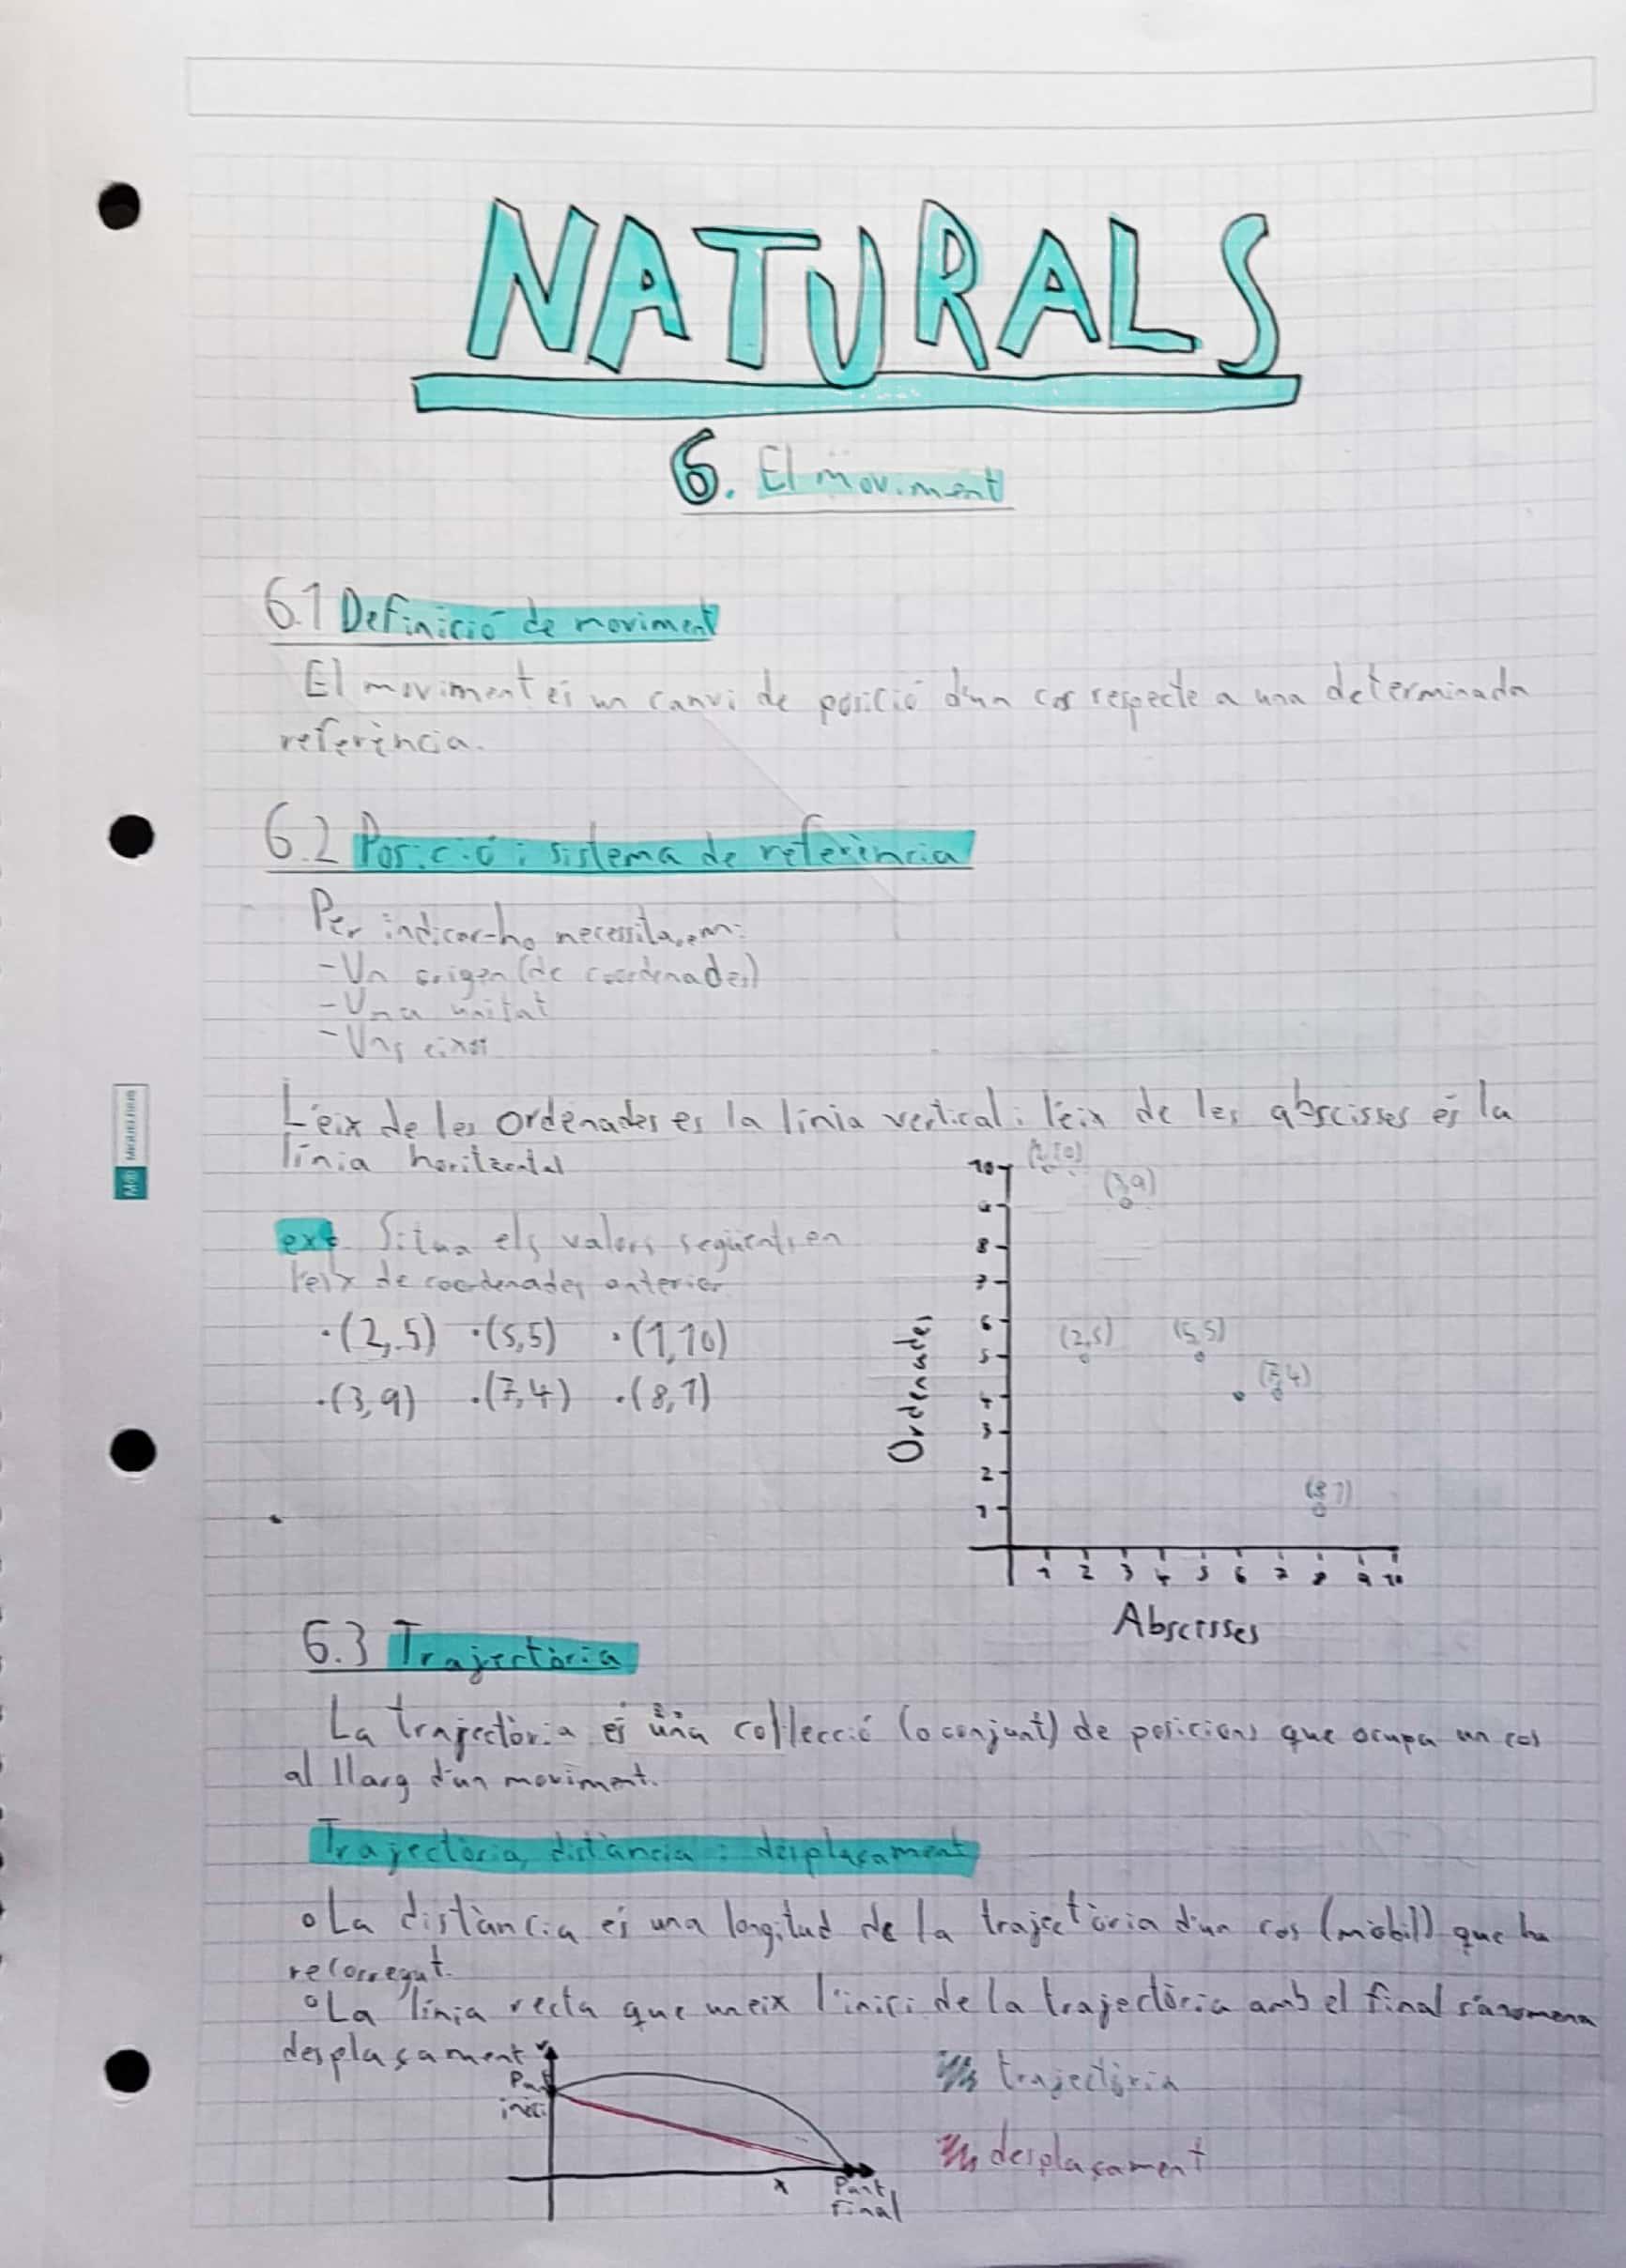 NATURALS
6. El moviment
6.1 Definició de moviment
El moviment és un canvi de posició d'un cos respecte a una determinada
referència.
6.2 Posició i sistema de referència
Per indicar-ho necessitarem:
-Un origen (de coordenades)
-Una unitat
-Uns eixos
L'eix de les ordenades es la línia vertical i l'eix de les abscisses és la
línia horitzontal
ex6 Situa els valors següents en
l'eix de coordenades anterior
·(2,5) ·(5,5) ·(1,10)
·(3,9) ·(7,4) ·(8,1)
10 (1,10)
9 (3,9)
8
7
6
5 (2,5) (5,5)
4 (7,4)
3
2
1 (8,1)
Ordenades
1 2 3 4 5 6 7 8 9 10
Abscisses
6.3 Trajectòria
La trajectòria és una col·lecció (o conjunt) de posicions que ocupa un cos
al llarg d'un moviment.
Trajectòria, distància i desplaçament
La distància és una longitud de la trajectòria d'un cos (mòbil) que ha
recorregut.
La línia recta que uneix l'inici de la trajectòria amb el final s'anomena
desplaçament
Punt
inici
x
Punt
final
trajectòria
desplaçament
M® MIQUELRIUS